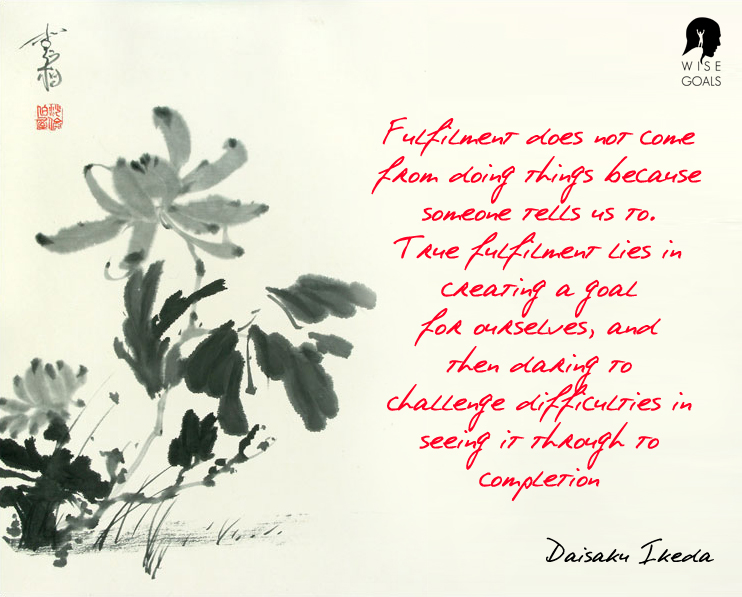 WISE
GOALS
Fulfilment does not come
from doing things because
someone tells us to.
True fulfilment lies in
creating a goal
for ourselves, and
then daring to
challenge difficulties in
seeing it through to
completion
Daisaku Ikeda